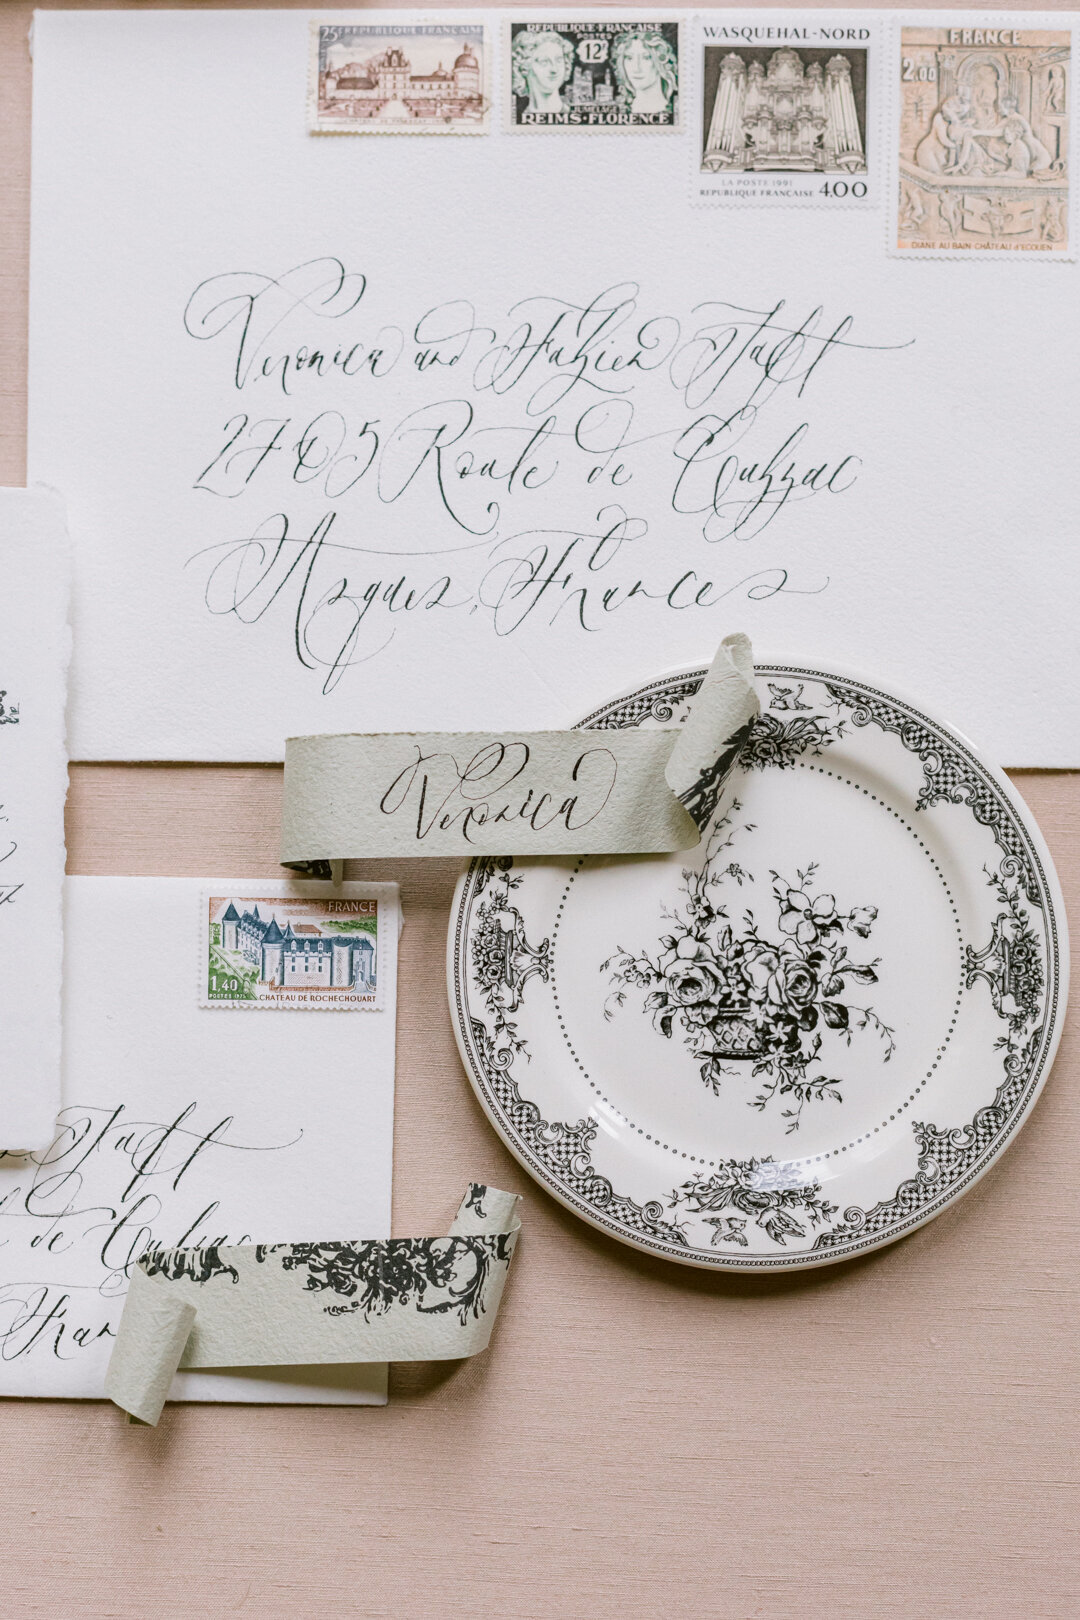 25F REPUBLIQUE FRANÇAISE
REPUBLIQUE FRANÇAISE
POSTES
12F
JUMELAGE
REIMS-FLORENCE
WASQUEHAL-NORD
LA POSTE 1991
REPUBLIQUE FRANÇAISE 4,00
FRANCE
2.00
DIANE AU BAIN-CHÂTEAU d'ECOUEN
Veronica and Fabien Taft
2705 Route de Cubzac
Asques, France
Veronica
FRANCE
1,40
POSTES
CHATEAU DE ROCHECHOUART
Taft
de Cubzac
Fran